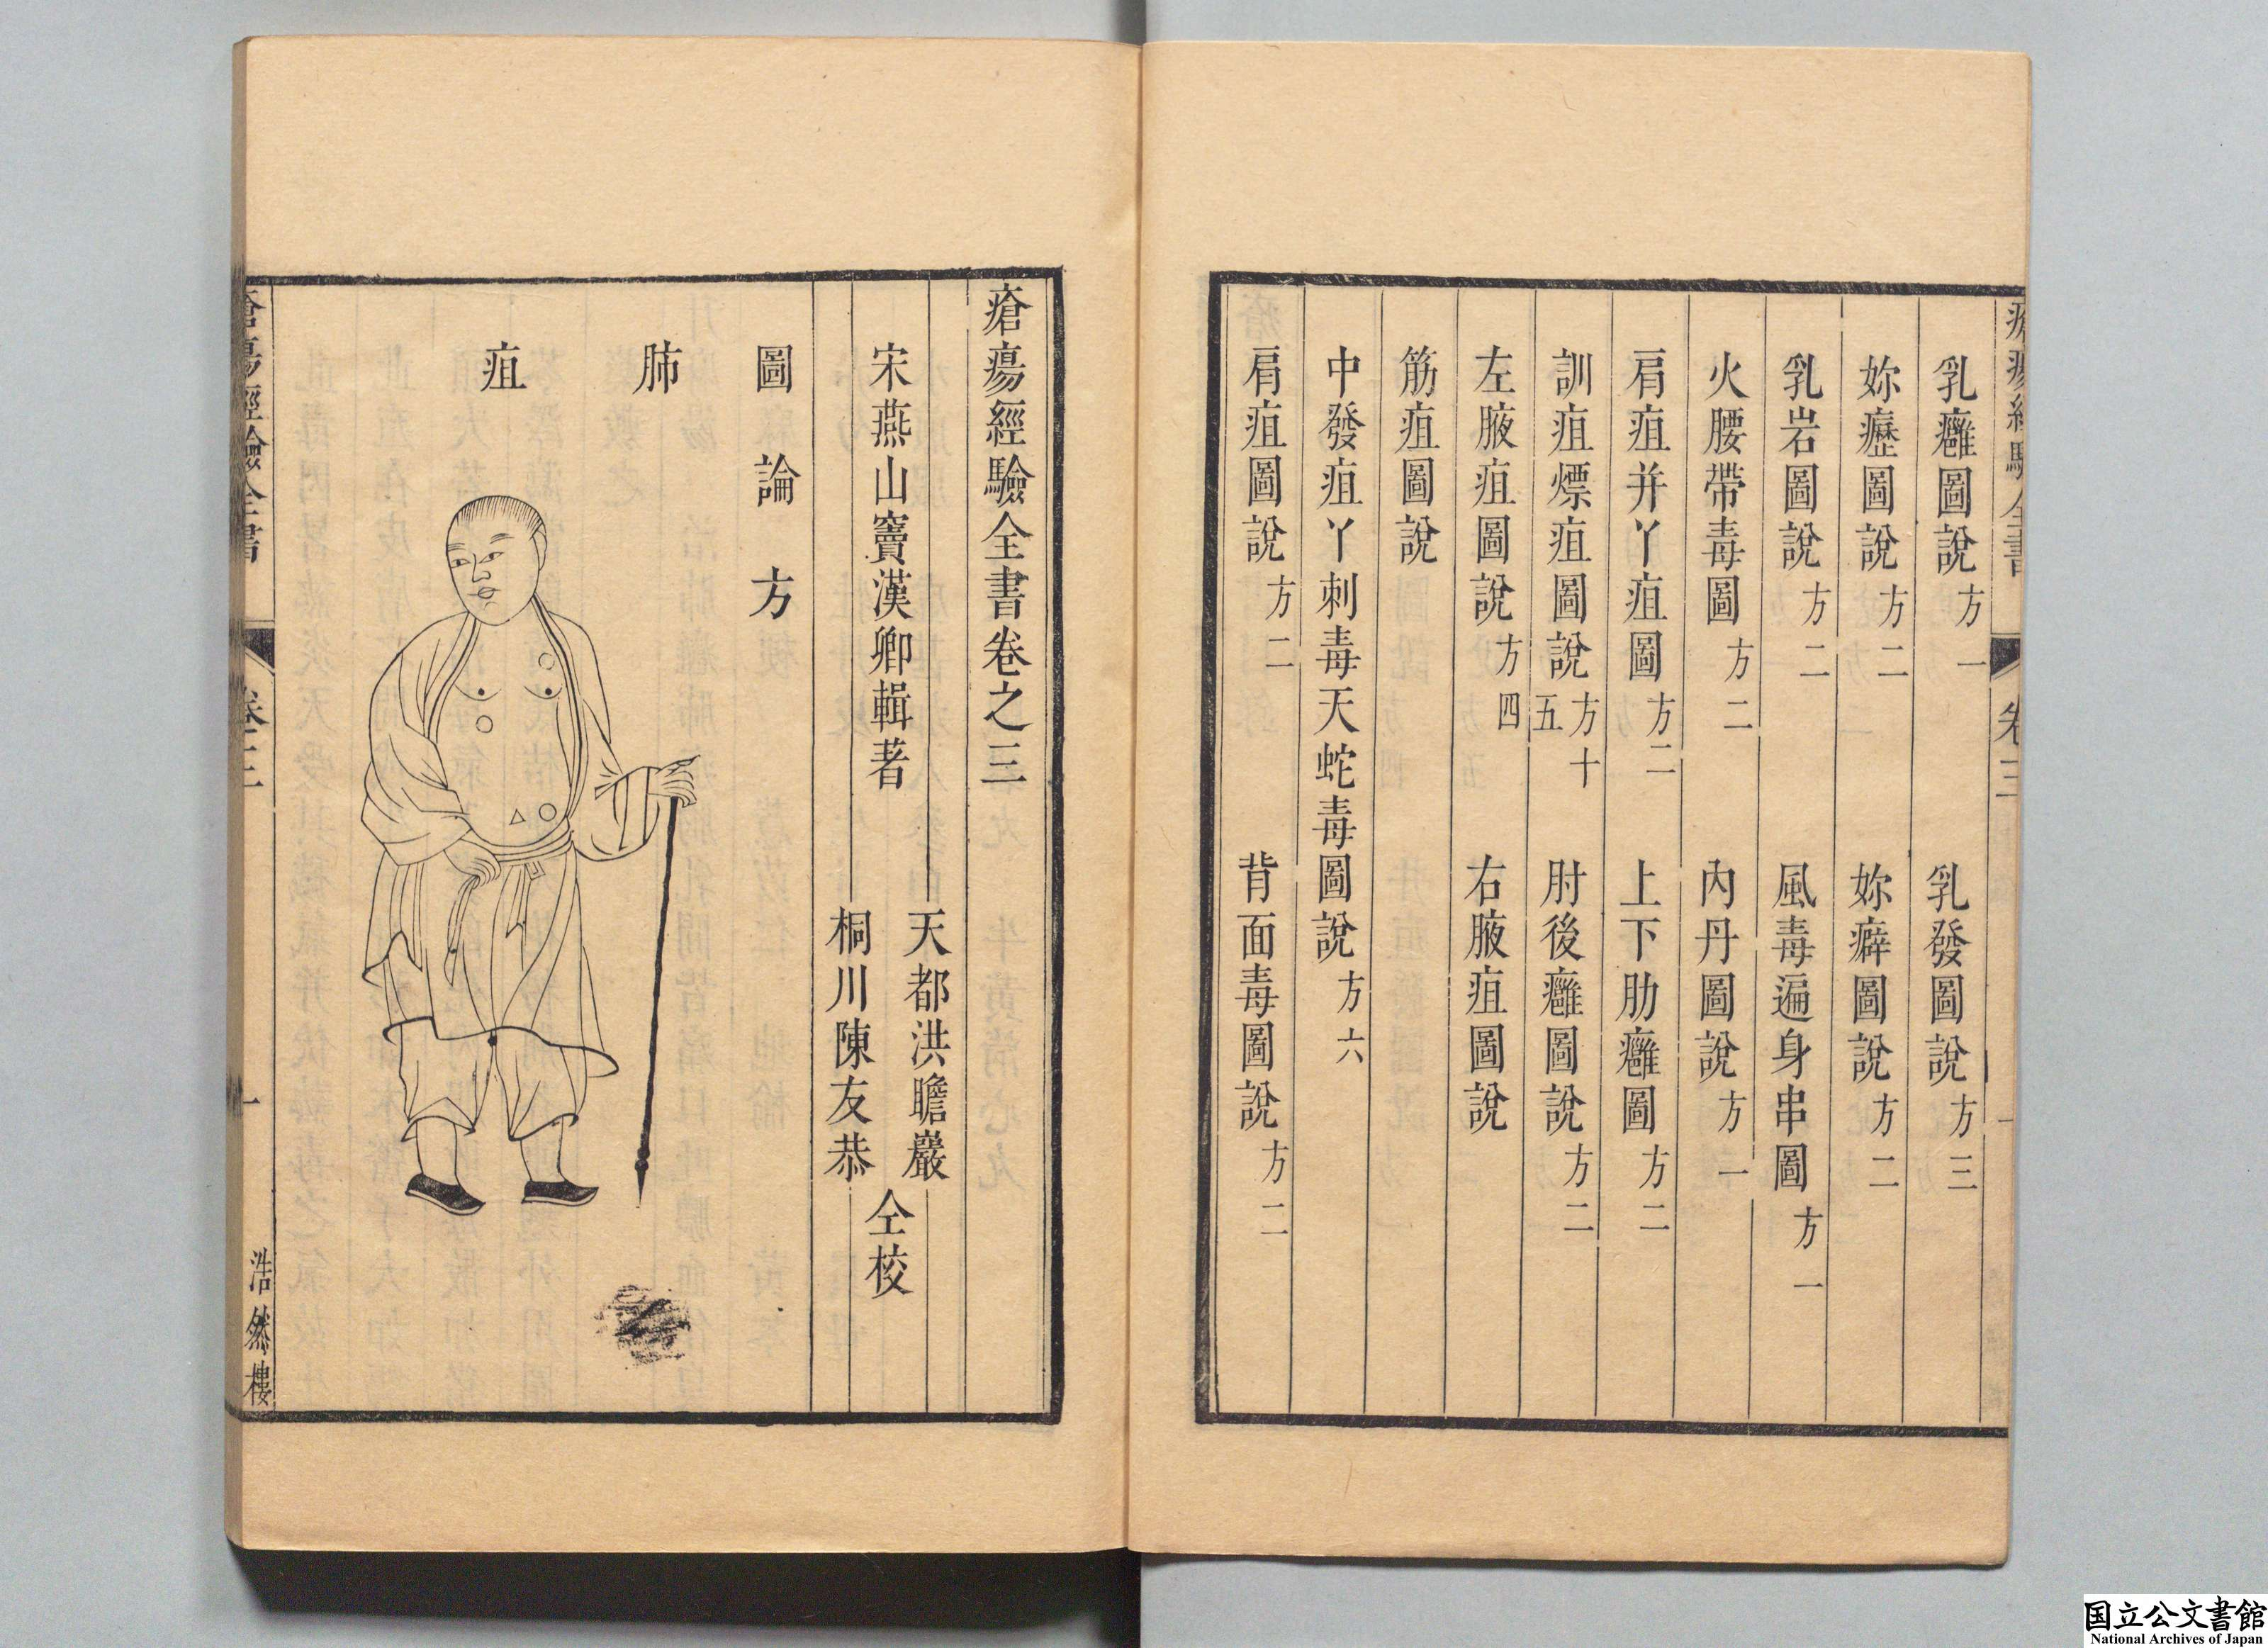 乳癰圖說方一　乳發圖說方三
妳癧圖說方二　妳癖圖說方二
乳岩圖說方二　風毒遍身串圖方一
火腰帶毒圖方二　內丹圖說方一
肩疽并丫疽圖方二　上下肋癰圖方二
訓疽熛疽圖說方十五　肘後癰圖說方二
左腋疽圖說方四　右腋疽圖說
筋疽圖說
中發疽丫刺毒天蛇毒圖說方六
肩疽圖說方二　背面毒圖說方二
卷三
瘡瘍經驗全書卷之三
宋燕山竇漢卿輯著
天都洪瞻巖
桐川陳友恭
仝校
圖論方
肺
疽
瘡瘍經驗全書
卷三
一
浩然樓
国立公文書館
National Archives of Japan